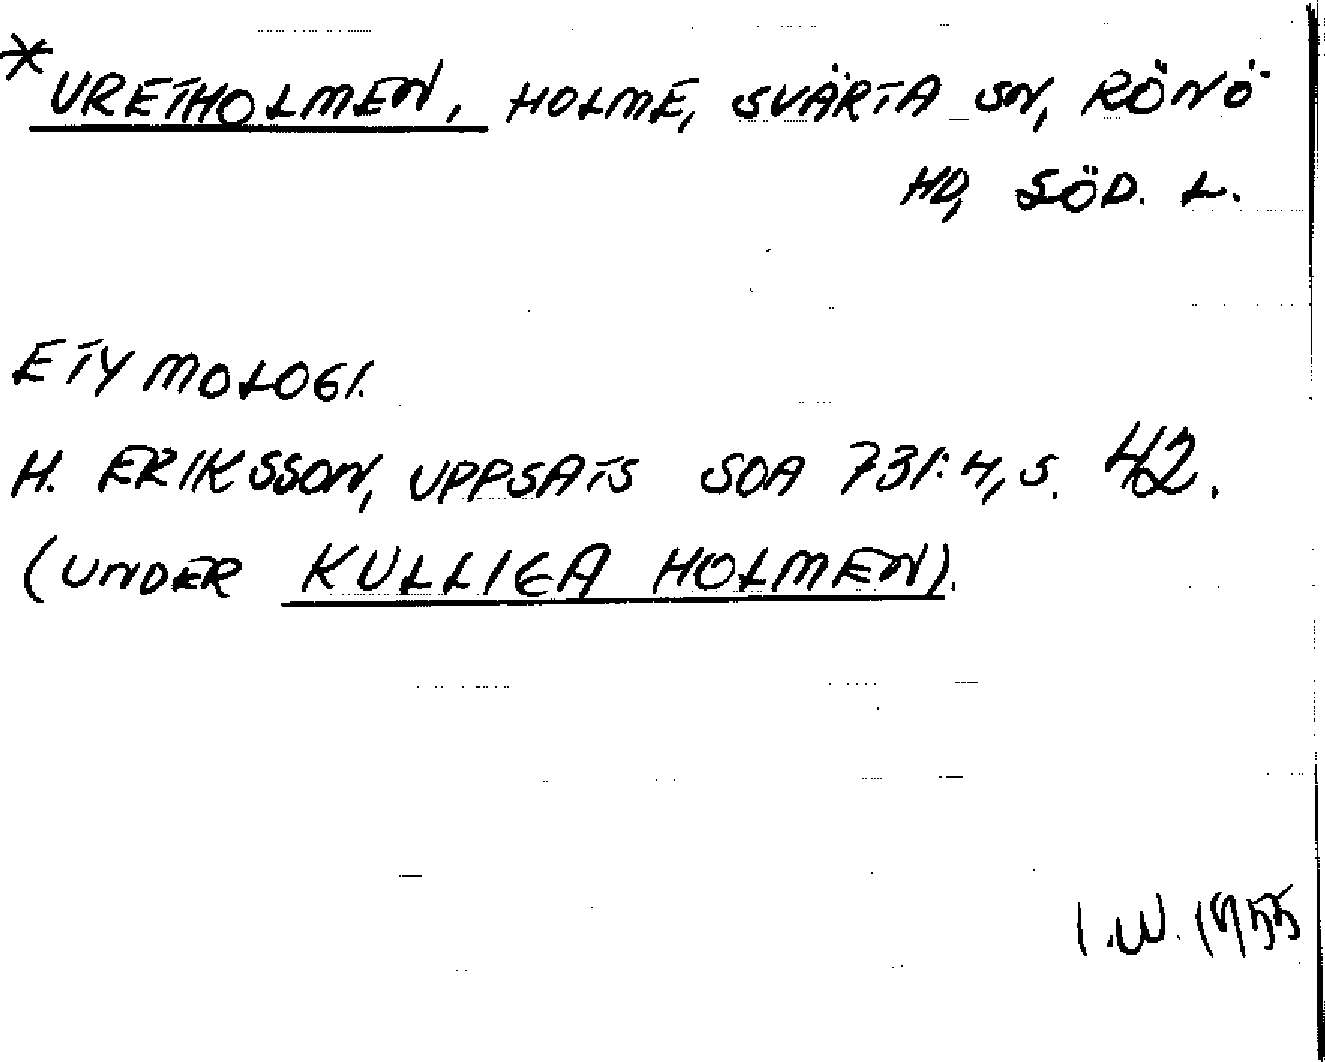 *URETHOLMEN, HOLME, SVÄRTA SN, RÖNÖ
HD, SÖD. L.
ETYMOLOGI.
H. ERIKSSON, UPPSATS SOA 731:4, S. 42.
(UNDER KULLIGA HOLMEN).
I.W. 1955